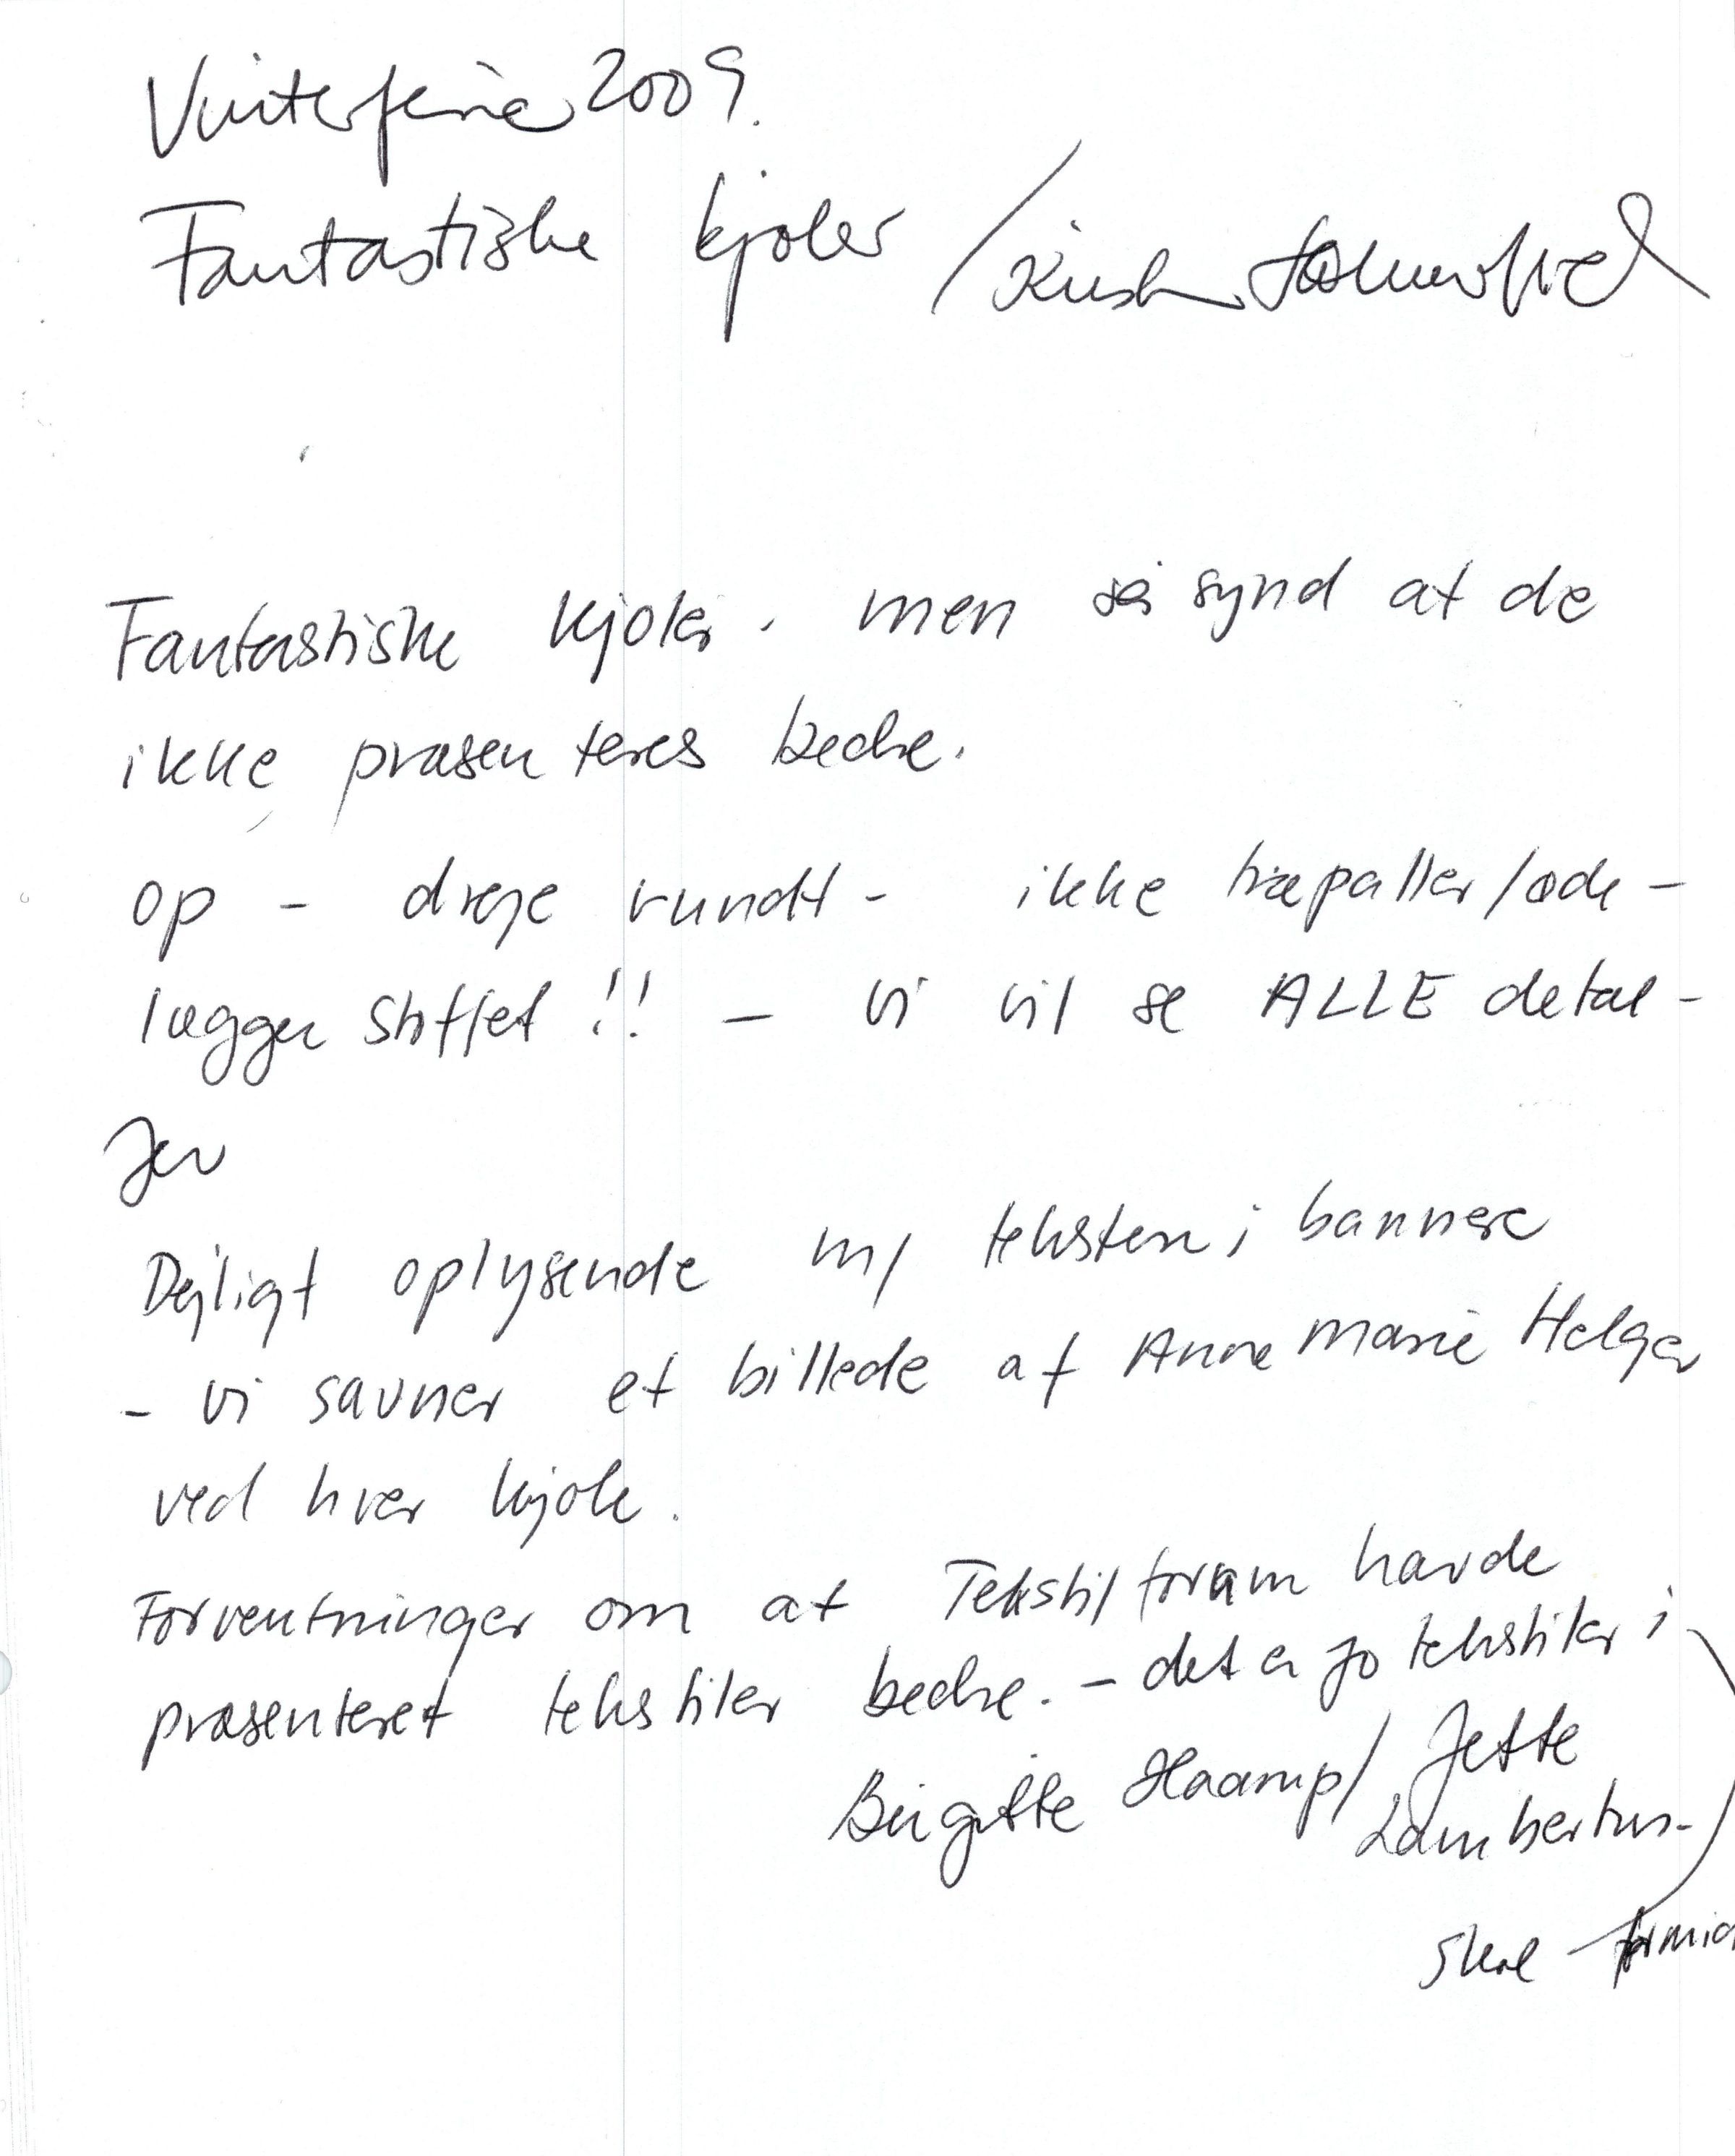 Vinterferie 2009.
Fantastiske kjoler /
Fantastiske kjoler. men så synd at de
ikke præsenteres bedre.
op - dreje rundt - ikke træpaller/øde-
lægger stoffet !! - vi vil se ALLE detal-
jer
Dejligt oplysende m/ teksten i bannere
- vi savner et billede af Anne Marie Helger
ved hver kjole.
Forventninger om at Tekstilforum havde
præsenteret tekstiler bedre. - det er jo tekstiler i
Birgitte Haarup / Jette
Lambertus-
skal formid